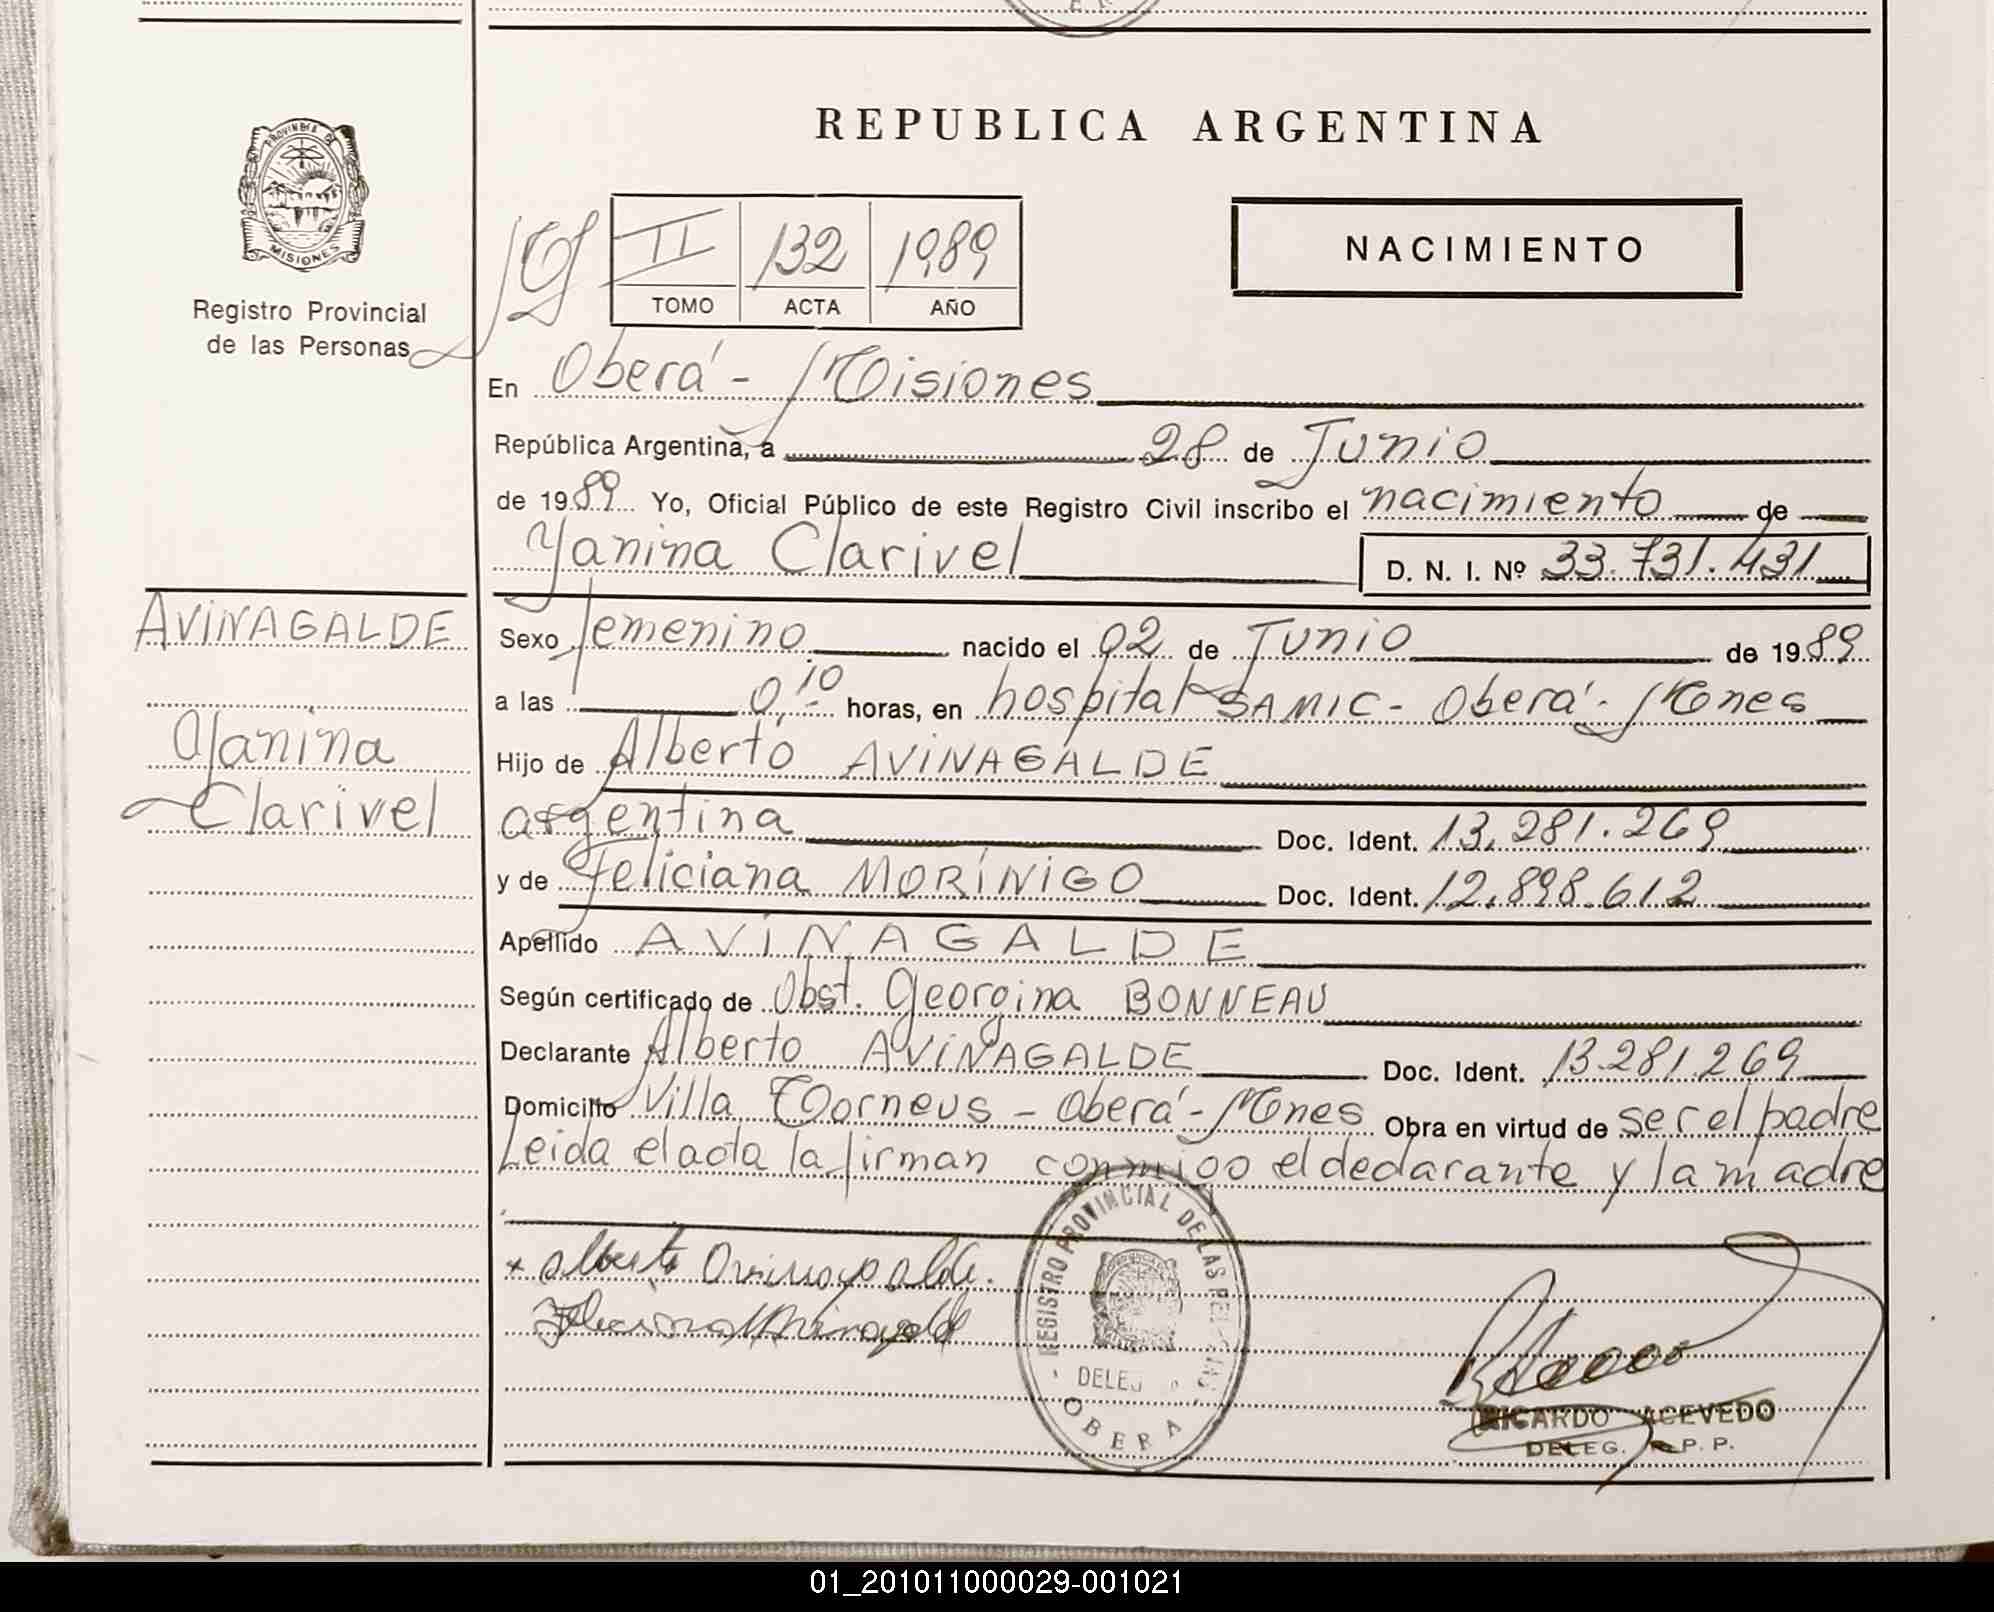 REPUBLICA ARGENTINA
PROVINCIA DE
MISIONES
Registro Provincial
de las Personas
II 132 1989
TOMO ACTA AÑO
NACIMIENTO
En Oberá - Misiones
República Argentina, a 28 de Junio
de 1989 Yo, Oficial Público de este Registro Civil inscribo el nacimiento de
Yanina Clarivel D. N. I. Nº 33.731.431
AVINAGALDE
Yanina
Clarivel
Sexo femenino nacido el 02 de Junio de 1989
a las 0,10 horas, en hospital SAMIC - Oberá - Mnes
Hijo de Alberto AVINAGALDE
argentina Doc. Ident. 13.281.269
y de Feliciana MORÍNIGO Doc. Ident. 12.898.612
Apellido AVINAGALDE
Según certificado de Obst. Georgina BONNEAU
Declarante Alberto AVINAGALDE Doc. Ident. 13.281.269
Domicilio Villa Oberá - Mnes Obra en virtud de ser el padre
Leida el acta la firman conmigo el declarante y la madre
REGISTRO PROVINCIAL DE LAS PERSONAS
OBERA
RICARDO ACEVEDO
DELEG. R. P. P.
01_201011000029-001021